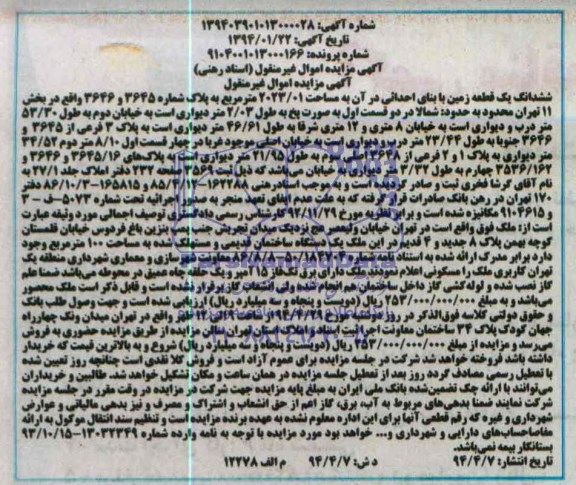 شماره آگهی: ۱۳۹۴۰۳۹۰۱۰۱۳۰۰۰۰۲۸
تاریخ آگهی: ۱۳۹۴/۰۱/۲۲
شماره پرونده: ۹۱۰۴۰۰۱۰۱۳۰۰۰۱۶۶
آگهی مزایده اموال غیرمنقول (اسناد رهنی)
آگهی مزایده اموال غیرمنقول
ششدانگ یک قطعه زمین با بنای احداثی در آن به مساحت ۲۰۲۳/۰۱ مترمربع به پلاک شماره ۳۶۴۵ و ۳۶۴۶ واقع در بخش
۱۱ تهران محدود به حدود: شمالا در دو قسمت اول به صورت پخ به طول ۲/۰۳ متر دیواری است به خیابان دوم به طول ۵۳/۳۰
متر درب و دیواری است به خیابان ۸ متری و ۱۲ متری شرقا به طول ۴۶/۶۱ متر دیواری است به پلاک ۳ فرعی از ۳۶۴۵ و
۳۶۴۶ جنوبا به طول ۲۳/۴۴ متر در و دیواری است به خیابان اصلی موجود غربا در چهار قسمت اول ۸/۱۰ متر دوم ۳۴/۵۲
متر دیواری به پلاک ۱ و ۲ فرعی از سوم به طول ۲۱/۹۵ متر دیواری است به پلاک‌های ۳۶۴۵/۱۶ و ۳۶۴۶ و
۳۵۳۶/۱۶۲ چهارم به طول ۳/۳۲ متر دیواری به خیابان می‌باشد که ذیل ثبت ۳۵۶۹ صفحه ۲۳۲ دفتر املاک جلد ۲۷/۱ به
نام آقای گرشا فخری ثبت و صادر گردیده است و به موجب اسناد رهنی ۱۶۲۲۸۸-۸۵/۲/۱۲ و ۱۶۵۸۱۵-۸۶/۱۰/۳ دفتر
۱۷۰ تهران در رهن بانک صادرات قرار گرفته که به علت عدم ایفای تعهد منجر به صدور اجرائیه تحت شماره ۵۰۷۳-ف-۳
و ۹۱۰۴۶۱۵ مکانیزه شده است و برابر نظریه مورخ ۹۲/۱۱/۲۹ کارشناس رسمی دادگستری توصیف اجمالی مورد وثیقه عبارت
است از: ملک فوق واقع است در تهران خیابان ولیعصر نزدیک میدان تجریش جنب پمپ بنزین باغ فردوس خیابان قلمستان
کوچه بهمن پلاک ۸ جدید و ۴ قدیم در این ملک یک دستگاه ساختمان قدیمی و مستهلک شده به مساحت ۱۰۰ مترمربع وجود
دارد برابر مدرک ارائه شده به استناد نامه شماره معاونت شهرسازی و معماری شهرداری منطقه یک
تهران کاربری ملک را مسکونی اعلام نمودند ملک دارای برق تک‌فاز ۱۵ آمپر و یک حلقه چاه عمیق در محوطه می‌باشد ضمنا علم
گاز نصب شده و لوله کشی گاز داخل ساختمان هم انجام شده ولی انشعاب گاز برقرار نشده است و قابل ذکر است ملک محصور
می‌باشد و به مبلغ ۲۵۳/۰۰۰/۰۰۰/۰۰۰ ریال (دویست و پنجاه و سه میلیارد ریال) ارزیابی شده است و جهت وصول طلب بانک
و حقوق دولتی کلاسه فوق‌الذکر در روز ۹۴/۴/۲۹ از ساعت ۹ الی ۱۲ واقع در تهران میدان ونک چهارراه
جهان کودک پلاک ۳۴ ساختمان معاونت اجرایی اسناد رسمی تهران سالن مزایده از طریق مزایده حضوری به فروش
می‌رسد و مزایده از مبلغ ۲۵۳/۰۰۰/۰۰۰/۰۰۰ ریال (دویست و پنجاه و سه میلیارد ریال) شروع و به بالاترین قیمت که خریدار
داشته باشد فروخته خواهد شد شرکت در جلسه مزایده برای عموم آزاد است و فروش کلا نقدی است چنانچه روز تعیین شده
با تعطیل رسمی مصادف گردد روز بعد از تعطیل جلسه مزایده در همان ساعت و مکان تشکیل خواهد شد. طالبین و خریداران
می‌توانند با ارائه چک تضمین‌شده بانک ملی ایران به مبلغ پایه مزایده جهت شرکت در مزایده در وقت مقرر در جلسه مزایده
شرکت نمایند ضمنا بدهی‌های مربوط به آب، برق، گاز اعم از حق انشعاب و اشتراک و مصرف و نیز بدهی مالیاتی و عوارض
شهرداری و غیره که رقم قطعی آنها برای این اداره معلوم نشده به عهده برنده مزایده است و تنظیم سند انتقال موکول به ارائه
مفاصاحساب‌های دارایی و شهرداری و... خواهد بود مورد مزایده با توجه به نامه وارده شماره ۱۳۰۳۲۳۴۹-۹۳/۱۰/۱۵
بستانکار بیمه نمی‌باشد.
تاریخ انتشار: ۹۴/۴/۷ د ش: ۹۴/۴/۷ م الف ۱۲۲۷۸